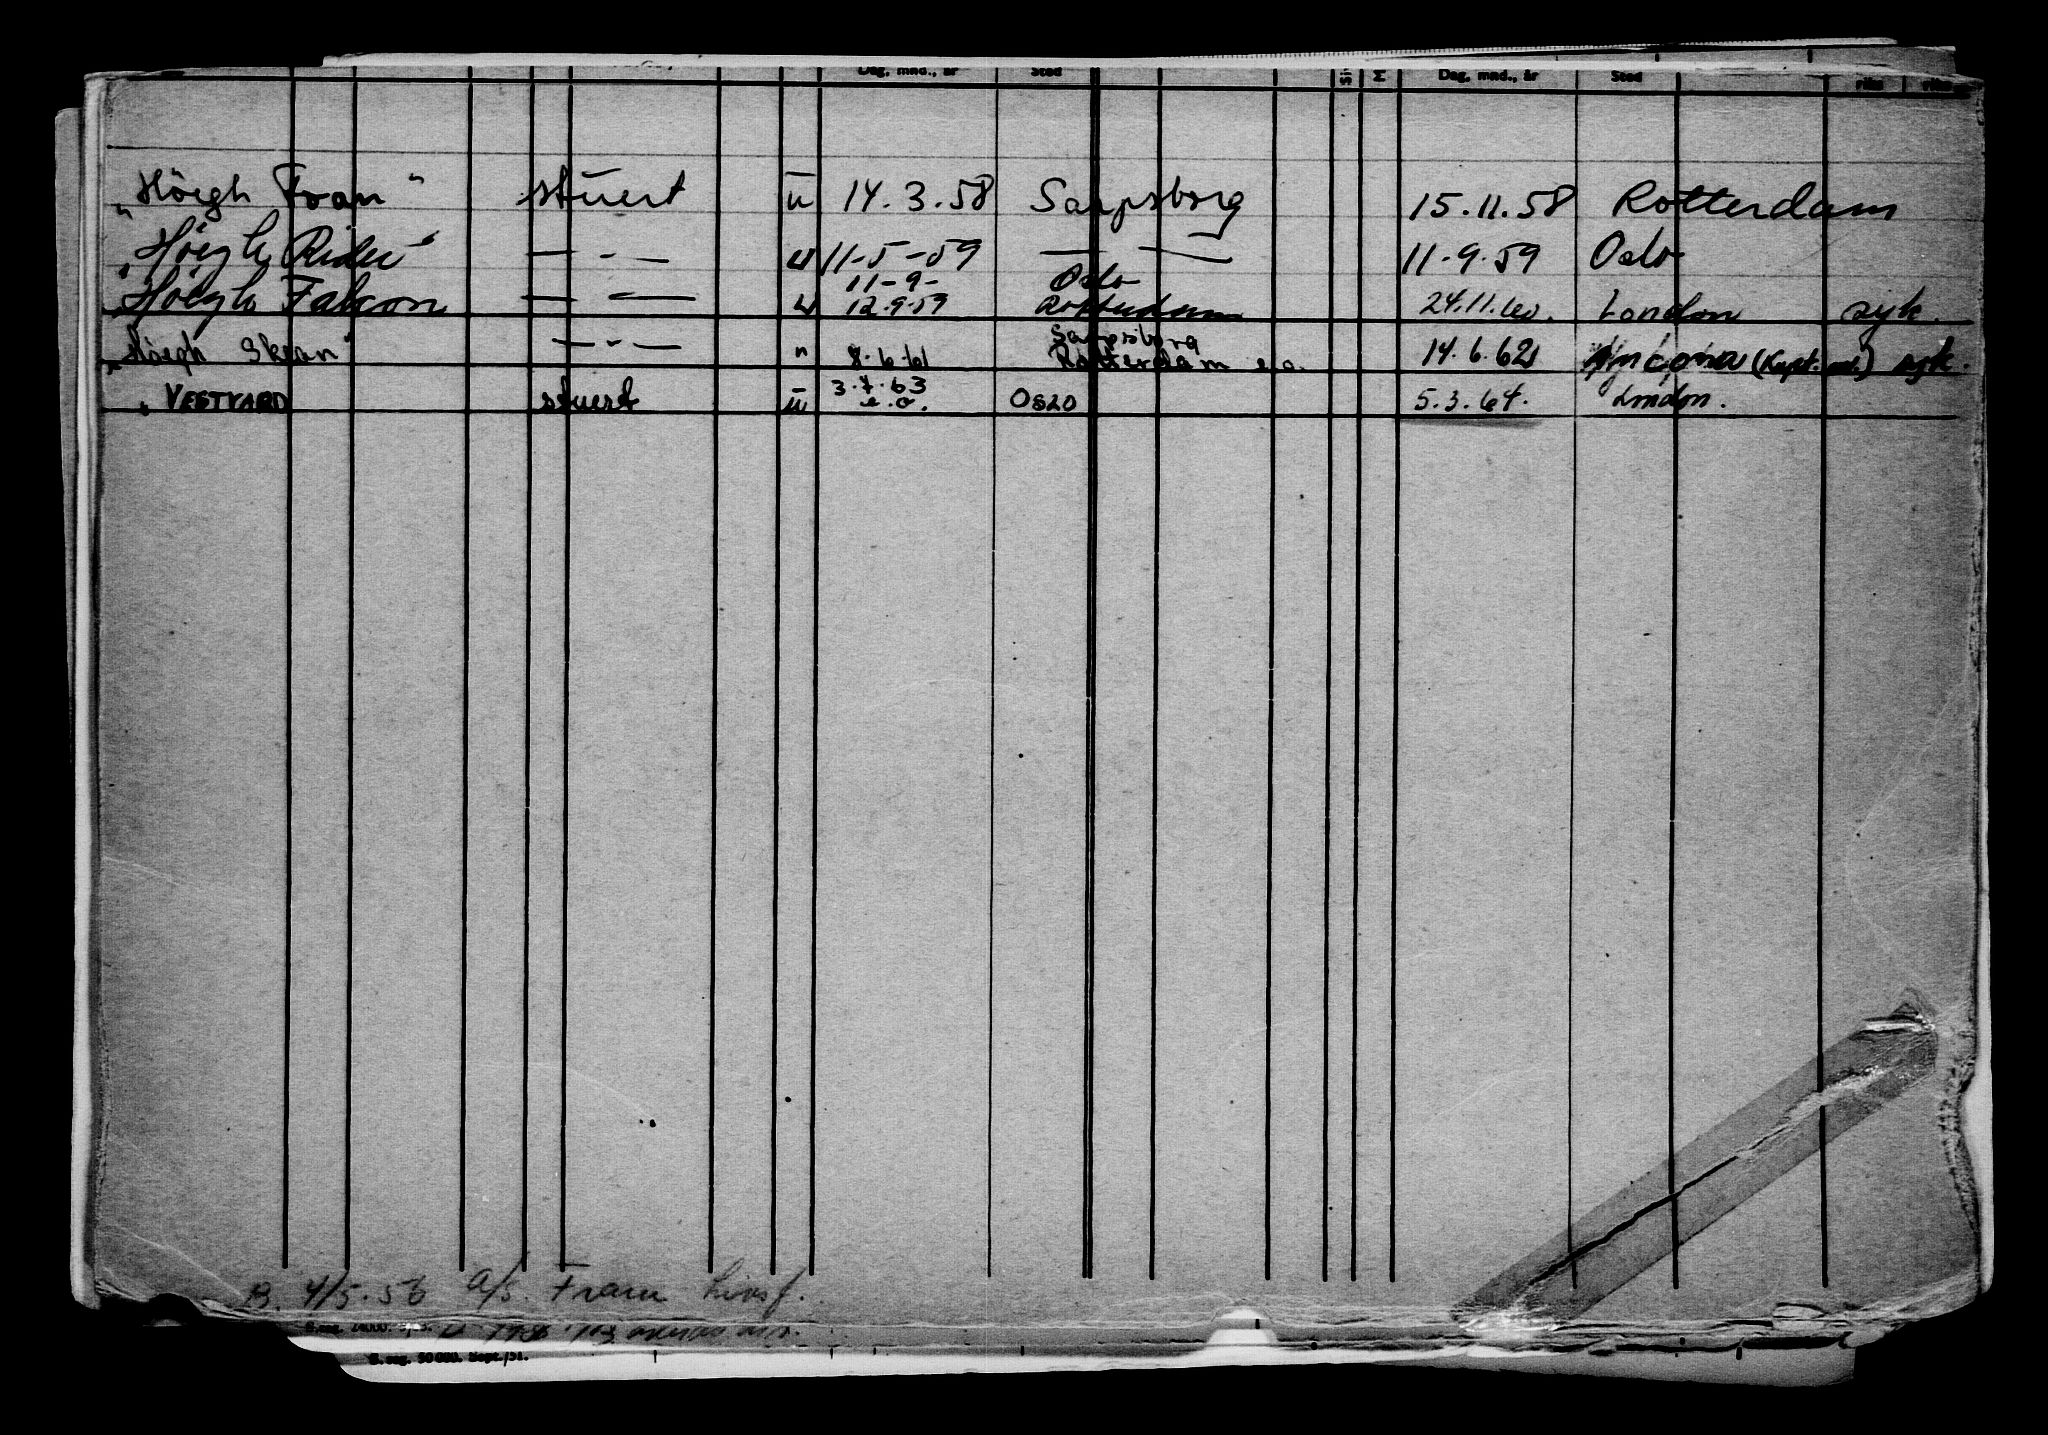 Dag, mnd., år Sted Dag, mnd., år Sted
"Höegh Tran" stuert u 14.3.58 Sarpsborg 15.11.58 Rotterdam
"Höegh Rider" — - — u 11-5-59 — - — 11.9.59 Oslo
11-9- Oslo
"Höegh Falcon — - — u 12.9.59 Rotterdam 24.11.60. London syk.
Sarpsborg
"Höegh Skean" — - — " 8.6.61 Rotterdam e.o. 14.6.62 Ancona (Kapt. ) syk.
3.7.63
"VESTVARD stuert u e.o. OSLO 5.3.64. London.
B. 4/5.56 a/s. Fram Livsf.
S. reg. 50 000. Sept./51.